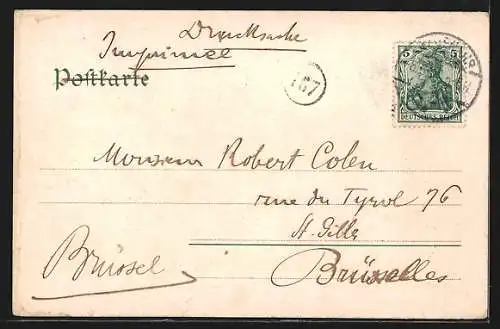 Drucksache
Imprimé
Postkarte
167
5 5
DEUTSCHES REICH
Monsieur Robert Colen
rue du Tyrol 76
St. Gilles
Brüssel
Bruxelles